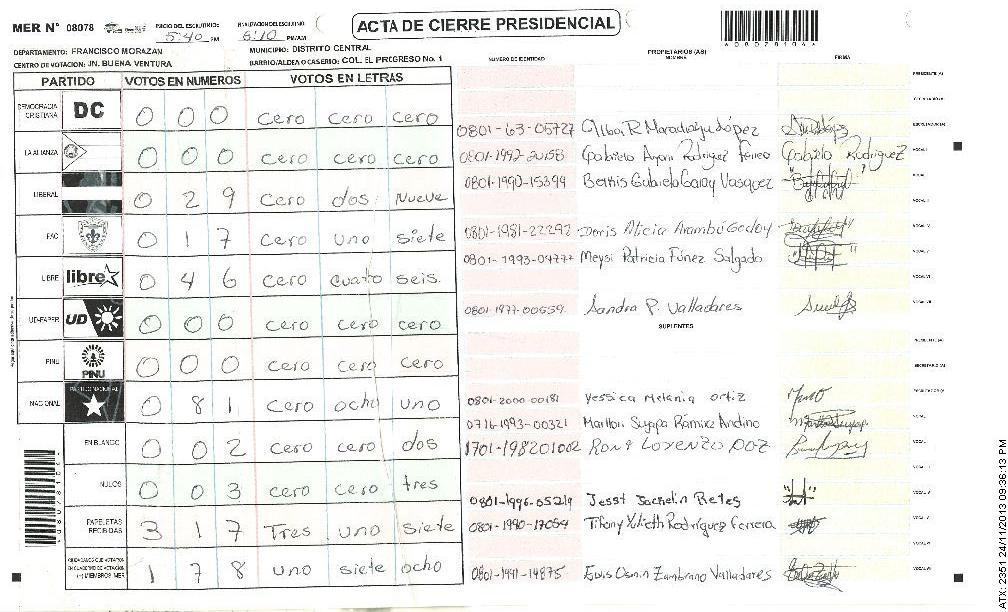 MER N° 08078
INICIO DEL ESCRUTINIO: 5:40 PM
FINALIZACION ESCRUTINIO: 6:10 PM/AM
ACTA DE CIERRE PRESIDENCIAL
DEPARTAMENTO: FRANCISCO MORAZAN
MUNICIPIO: DISTRITO CENTRAL
CENTRO DE VOTACION: JN. BUENA VENTURA
BARRIO/ALDEA O CASERIO: COL. EL PREGRESO No. 1
NUMERO DE IDENTIDAD
PROPIETARIOS (AS)
NOMBRE
FIRMA
PARTIDO VOTOS EN NUMEROS VOTOS EN LETRAS
DEMOCRACIA CRISTIANA DC 0 0 0 cero cero cero
LA ALIANZA 0 0 0 cero cero cero
LIBERAL 0 2 9 cero dos Nueve
PAC 0 1 7 cero uno siete
LIBRE libre 0 4 6 cero cuatro seis.
UD-FAPER UD 0 0 0 cero cero cero
PINU PINU 0 0 0 cero cero cero
NACIONAL PARTIDO NACIONAL 0 8 1 cero ocho uno
EN BLANCO 0 0 2 cero cero dos
NULOS 0 0 3 cero cero tres
PAPELETAS RECIBIDAS 3 1 7 Tres uno siete
CIUDADANOS QUE VOTARON EN CUADERNO DE VOTACION (+) MIEMBROS MER 1 7 8 uno siete ocho
PRESIDENTE (A)
SECRETARIO (A)
0801-63-05727 Alba R Maradiaga López ESCRUTADOR (A)
0801-1992-20158 Gabriela Rodriguez Gabriela Rodriguez VOCAL I
0801-1990-15399 Gabriela Garay Vasquez
0801-1981-22292 Doris Alicia Arambú Godoy
0801-1993-04777 Meysi Patricia Fúnez Salgado
0801-1977-00559 Sandra P. Valladares
SUPLENTES
PRESIDENTE (A)
SECRETARIO (A)
0801-2000-00181 Yessica Melania Ortiz
0716-1993-00321 Suyapa Ramirez Andino
1701-198201002 Lorenzo
0801-1996-05219 Retes
0801-1990-17054 Rodriguez Ferrera
0801-1991-14875 Osmin Zambrano Valladares
*08078104*
ATX: 2351 24/11/2013 09:36:13 PM